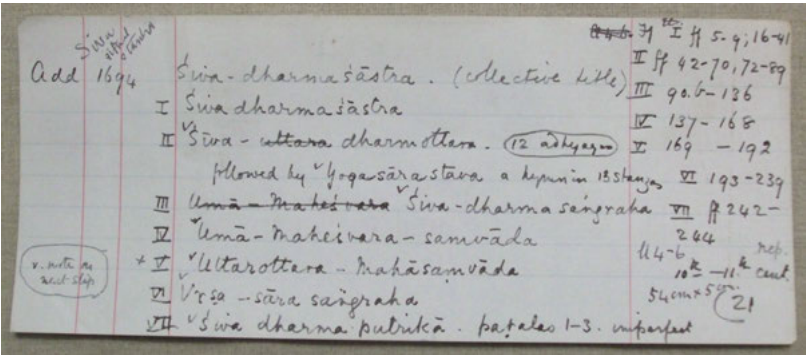 Siva ritual & tantra
Add 1694 Śiva-dharmaśāstra. (collective title)
I Śivadharmaśāstra
II Śiva-uttara dharmottara. (12 adhyayas)
followed by Yogasāra stava a hymn in 13 stanzas
III Umā-Maheśvara Śiva-dharma saṅgraha
IV Umā-Maheśvara-saṃvāda
+ V Uttarottara-Mahāsaṃvāda
VI Vṛṣa-sāra saṅgraha
VII Śiva dharma putrikā. paṭalas 1-3. imperfect
v. note on next slip
ff I ff 5-9; 16-41
II ff 42-70, 72-89
III 90.b-136
IV 137-168
V 169-192
VI 193-239
VII ff 242-
244
ll 4-6 nep.
10th-11th cent.
54cm x 5cm
21